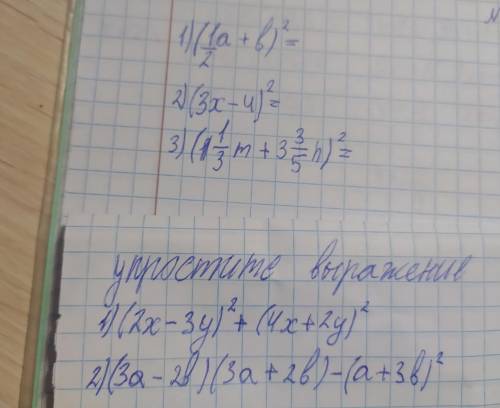 1) (1/2 a + b)² =
2) (3x - 4)² =
3) (1 1/3 m + 3 3/5 n)² =
упростите выражение
1) (2x - 3y)² + (4x + 2y)²
2) (3a - 2b)(3a + 2b) - (a + 3b)²